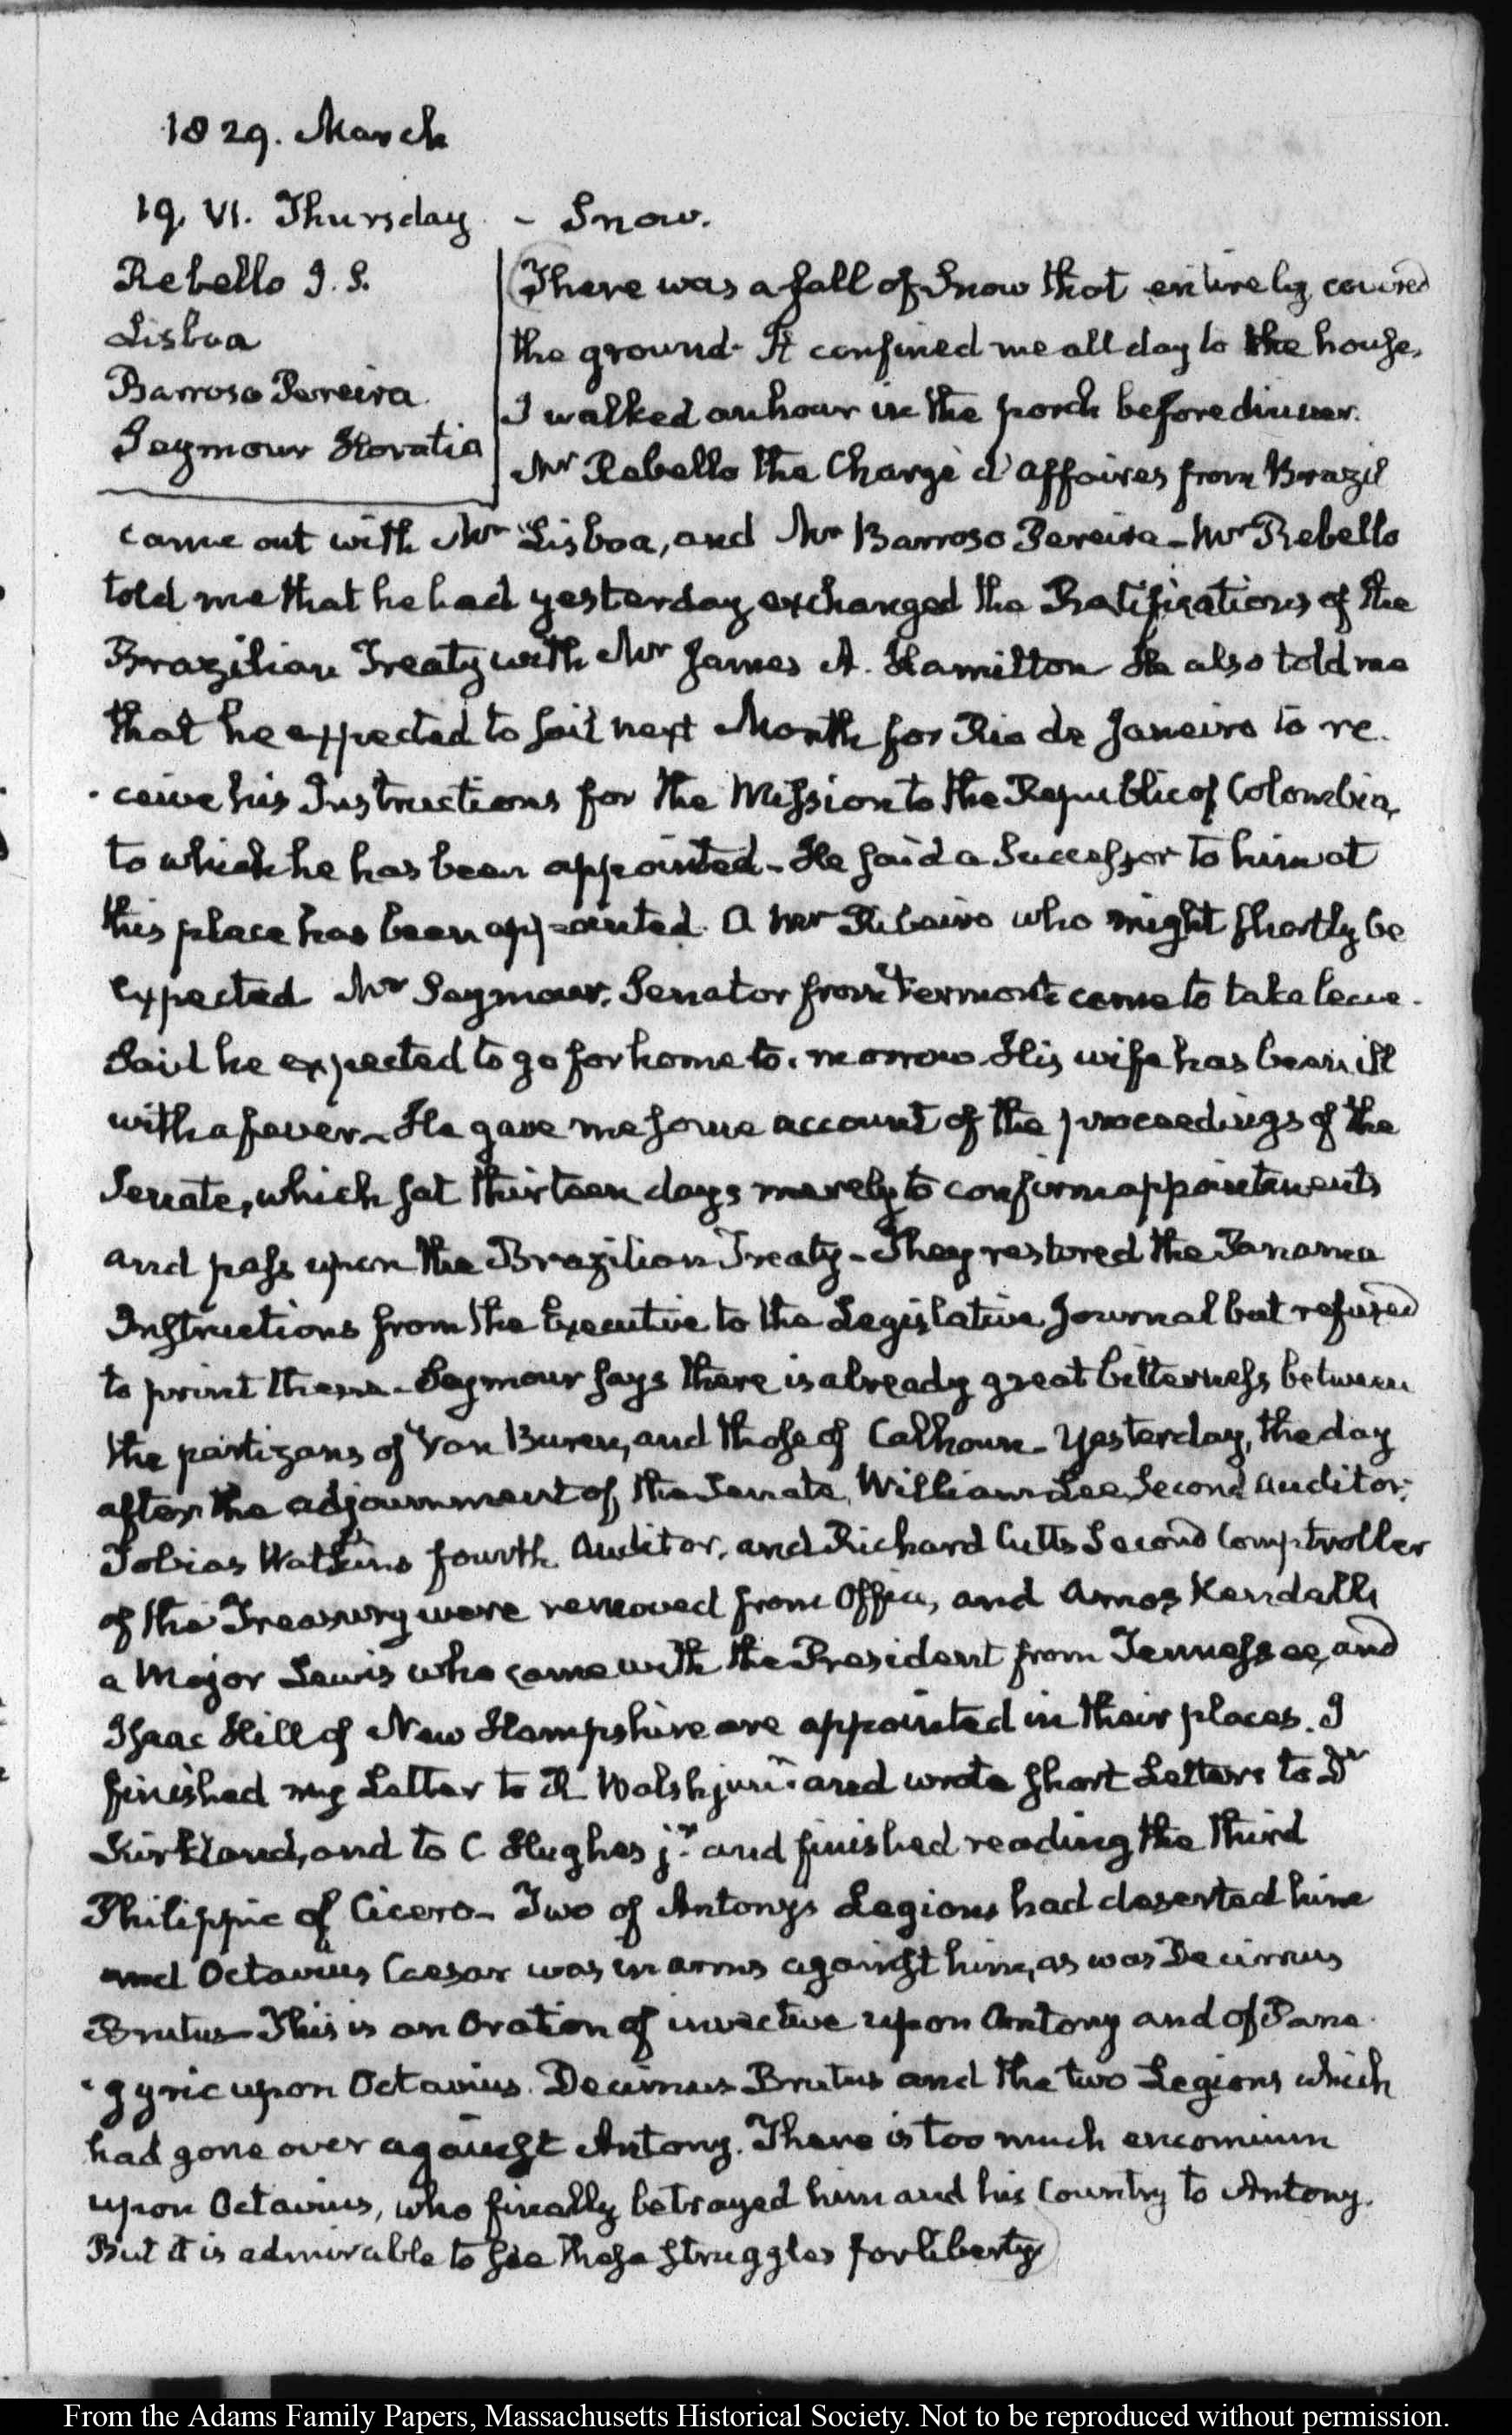 1829. March
19. VI. Thursday. – Snow.
Rebello J. S.
Lisboa
Barroso Pereira
Seymour Horatio
There was a fall of Snow that entirely covered
the ground. It confined me all day to the house,
I walked an hour in the porch before dinner.
Mr Rebello the Chargé d'affaires from Brazil
came out with Mr Lisboa, and Mr Barroso Pereira – Mr Rebello
told me that he had yesterday exchanged the Ratifications of the
Brazilian Treaty with Mr James A. Hamilton He also told me
that he expected to sail next Month for Rio de Janeiro to re-
-ceive his Instructions for the Mission to the Republic of Colombia,
to which he has been appointed – He said a Successor to him at
this place has been appointed. A Mr Ribeiro who might shortly be
expected Mr Seymour, Senator from Vermont came to take leave.
Said he expected to go for home to-morrow. His wife has been ill
with a fever – He gave me some account of the proceedings of the
Senate, which sat thirteen days merely to confirm appointments
and pass upon the Brazilian Treaty – They restored the Panama
Instructions from the Executive to the Legislative Journal but refused
to print them – Seymour says there is already great bitterness between
the partizans of Van Buren, and those of Calhoun – Yesterday, the day
after the adjournment of the Senate, William Lee Second Auditor,
Tobias Watkins fourth Auditor, and Richard Cutts Second Comptroller
of the Treasury were removed from Office, and Amos Kendall,
a Major Lewis who came with the President from Tennessee, and
Isaac Hill of New Hampshire are appointed in their places. I
finished my Letter to R Walsh junr. and wrote short Letters to Dr
Kirkland, and to C Hughes jr. and finished reading the third
Philippic of Cicero – Two of Antonys Legions had deserted him
and Octavius Caesar was in arms against him, as was Decimus
Brutus – This is an Oration of invective upon Antony and of Pane-
-gyric upon Octavius. Decimus Brutus and the two Legions which
had gone over against Antony. There is too much encomium
upon Octavius, who finally betrayed him and his Country to Antony.
But it is admirable to see these struggles for liberty
From the Adams Family Papers, Massachusetts Historical Society. Not to be reproduced without permission.